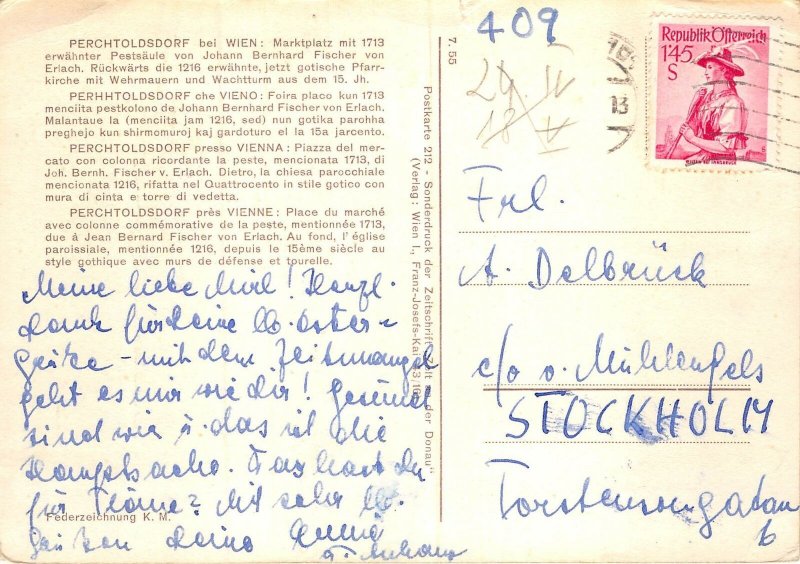 PERCHTOLDSDORF bei WIEN: Marktplatz mit 1713
erwähnter Pestsäule von Johann Bernhard Fischer von
Erlach. Rückwärts die 1216 erwähnte, jetzt gotische Pfarr-
kirche mit Wehrmauern und Wachtturm aus dem 15. Jh.
PERHHTOLDSDORF che VIENO: Foira placo kun 1713
menciita pestkolono de Johann Bernhard Fischer von Erlach.
Malantaue la (menciita jam 1216, sed) nun gotika parohha
preghejo kun shirmomuroj kaj gardoturo el la 15a jarcento.
PERCHTOLDSDORF presso VIENNA: Piazza del mer-
cato con colonna ricordante la peste, mencionata 1713, di
Joh. Bernh. Fischer v. Erlach. Dietro, la chiesa parocchiale
mencionata 1216, rifatta nel Quattrocento in stile gotico con
mura di cinta e torre di vedetta.
PERCHTOLDSDORF près VIENNE: Place du marché
avec colonne commémorative de la peste, mentionnée 1713,
due à Jean Bernard Fischer von Erlach. Au fond, l'église
paroissiale, mentionnée 1216, depuis le 15ème siècle au
style gothique avec murs de défense et tourelle.
Meine liebe ! Herzl.
Dank für deine lb. Oster-
Grüße - mit dem Zeitmangel
geht es mir wie dir! Gesund
sind wir u. das ist die
Hauptsache. Was hast du
für Pläne? Mit sehr lb.
Grüßen Deine
Federzeichnung K. M.
7. 55
Postkarte 212 - Sonderdruck der Zeitschrift der Donau"
(Verlag: Wien I., Franz-Josefs-Kai
409
24. IV
18. V
Republik Österreich
1'45
S
13
Frl.
A. Delbrück
c/o v. Mühlenfels
STOCKHOLM
Torstensongatan
6